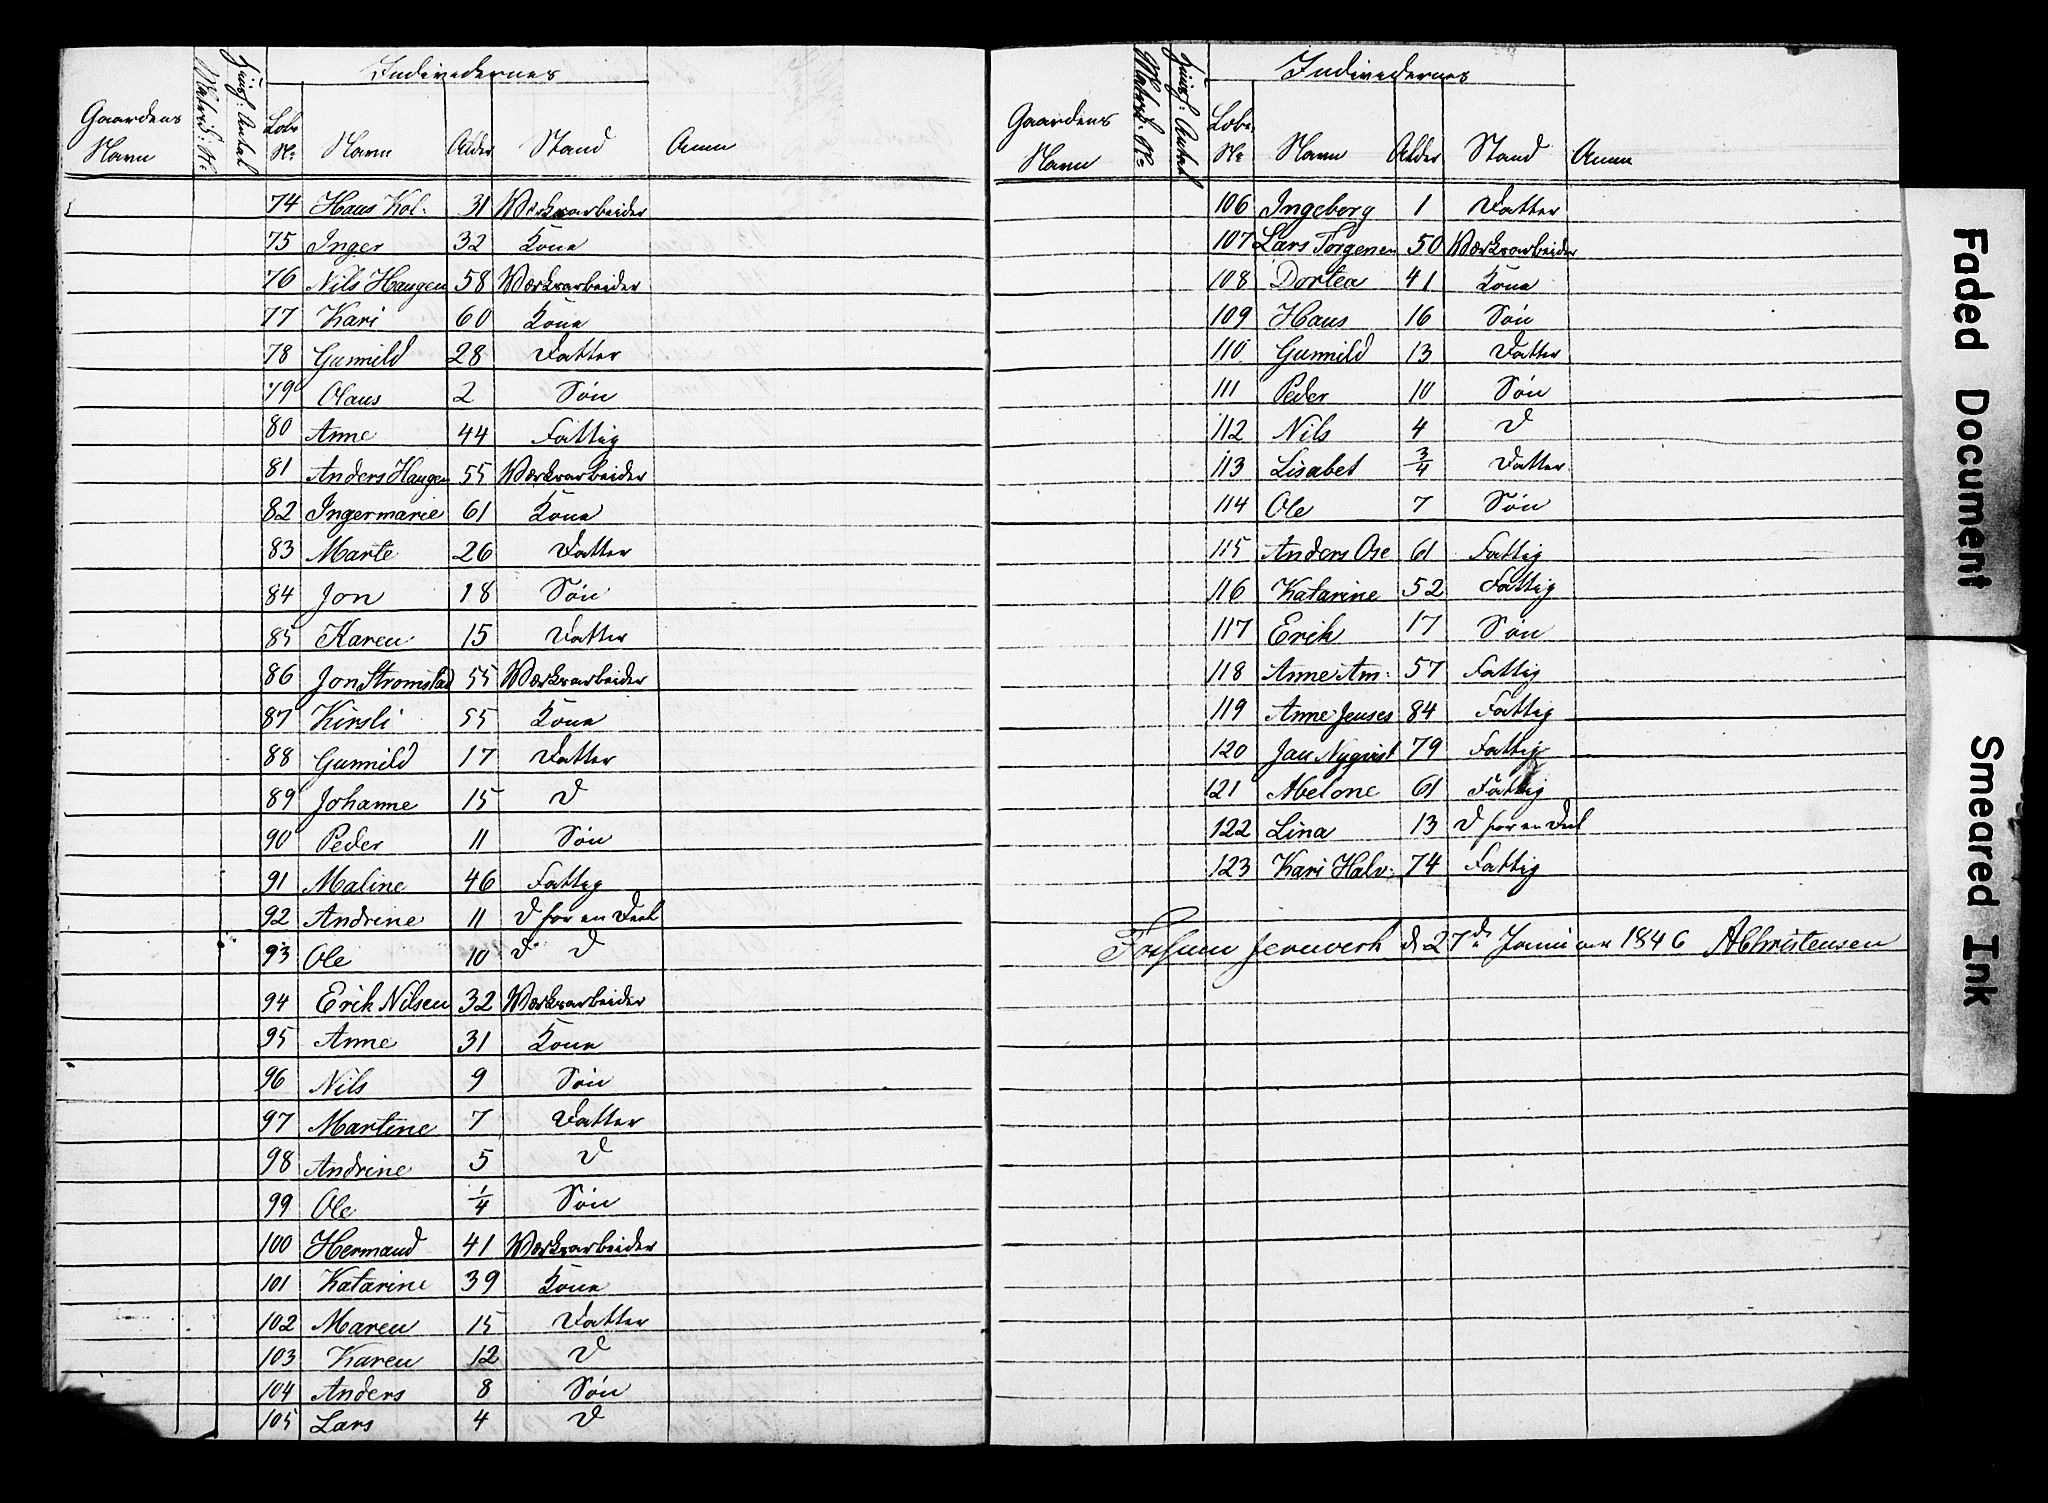 Individernes
Gaardens Navn | Matrd: No | Huusf: Antal | Løbe No | Navn | Alder | Stand | Anm
74 Hans Kol: 31 Værksarbeider
75 Inger 32 Kone
76 Nils Haugen 58 Værksarbeider
77 Kari 60 Kone
78 Gunnild 28 Datter
79 Olaus 2 Søn
80 Anne 44 Fattig
81 Anders Haugen 55 Værksarbeider
82 Ingermarie 61 Kone
83 Marte 26 Datter
84 Jon 18 Søn
85 Karen 15 Datter
86 Jon Strømstad 55 Værksarbeider
87 Kirsti 55 Kone
88 Gunnild 17 Datter
89 Johanne 15 D
90 Peder 11 Søn
91 Maline 46 Fattig
92 Andrine 11 D for en Deel
93 Ole 10 D D
94 Erik Nilsen 32 Værksarbeider
95 Anne 31 Kone
96 Nils 9 Søn
97 Martine 7 Datter
98 Andrine 5 D
99 Ole 1/4 Søn
100 Hermand 41 Værksarbeider
101 Katarine 39 Kone
102 Maren 15 Datter
103 Karen 12 D
104 Anders 8 Søn
105 Lars 4 D
Individernes
Gaardens Navn | Matrd: No | Huusf: Antal | Løbe No | Navn | Alder | Stand | Anm
106 Ingeborg 1 Datter
107 Lars Torgersen 50 Værksarbeider
108 Dortea 41 Kone
109 Hans 16 Søn
110 Gunnild 13 Datter
111 Peder 10 Søn
112 Nils 4 D
113 Lisabet 3/4 Datter
114 Ole 7 Søn
115 Anders Ose 61 Fattig
116 Katarine 52 Fattig
117 Erik 17 Søn
118 Anne Am: 57 Fattig
119 Anne Jenses 84 Fattig
120 Jan Nyqvist 79 Fattig
121 Abelone 61 Fattig
122 Lina 13 D for en Deel
123 Kari Halv: 74 Fattig
Fossum Jernverk d 27de Januar 1846 AChristensen
Faded Document
Smeared Ink